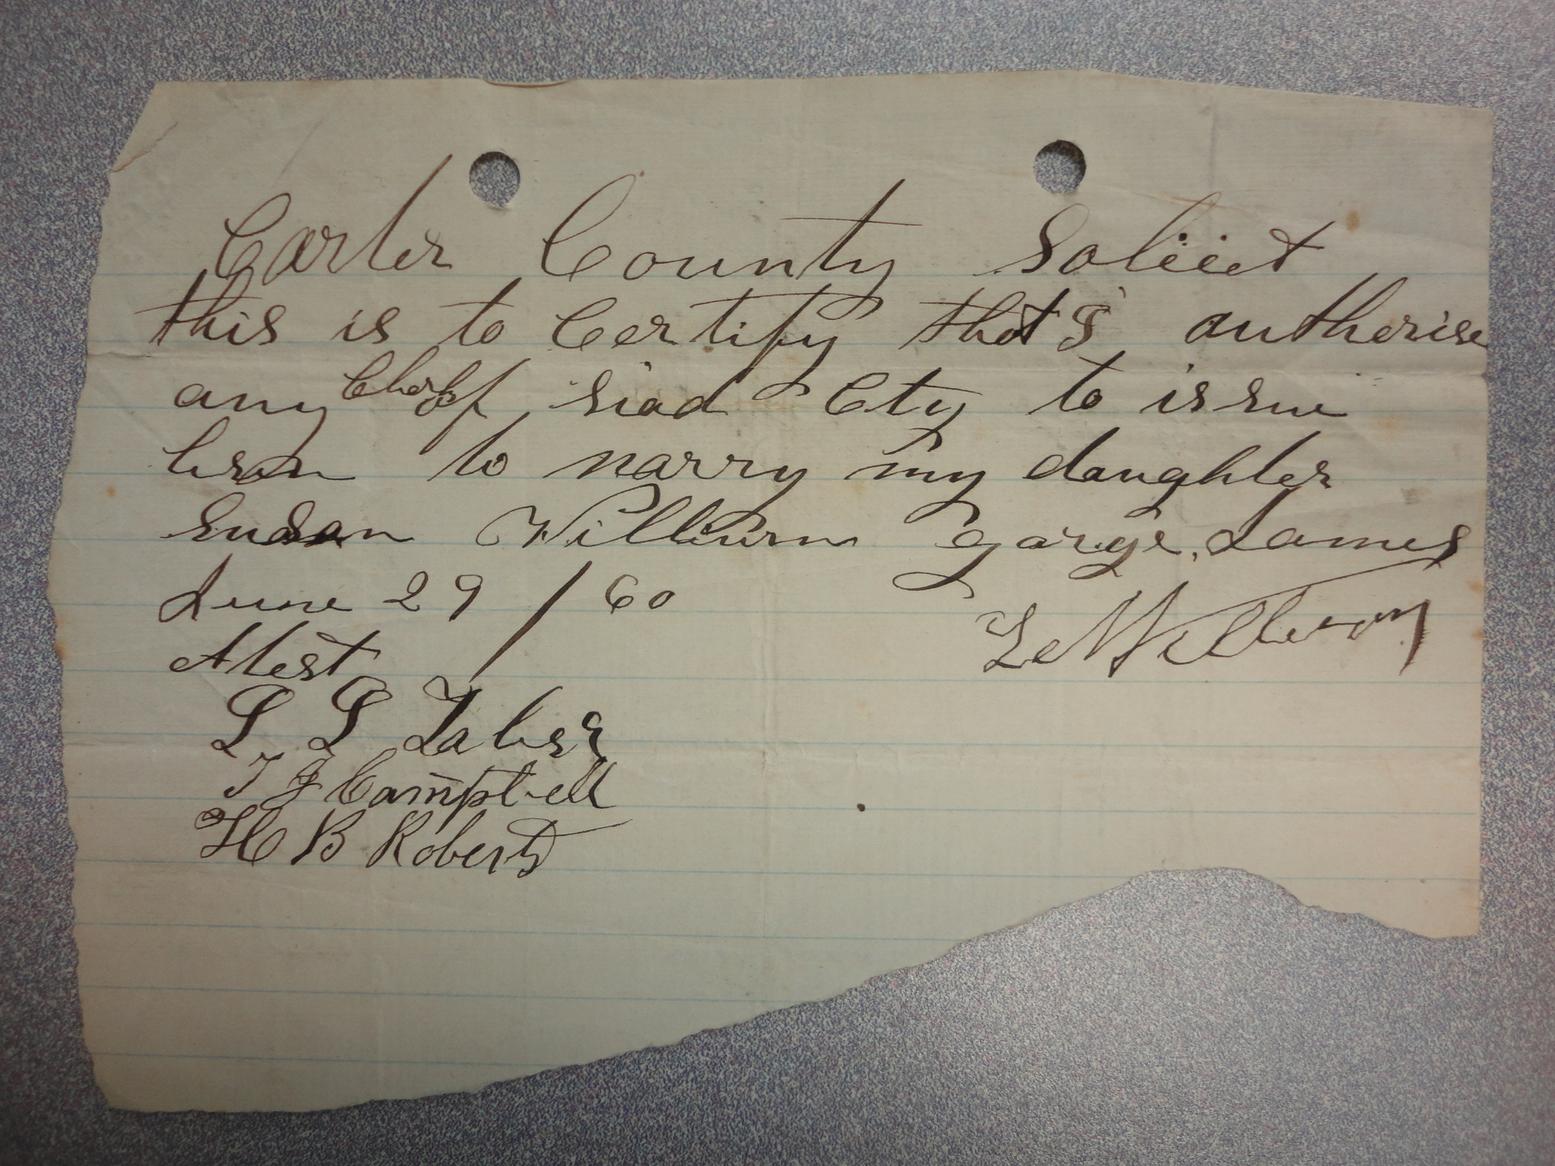 Carter County Solicet
this is to Certify that I authorise
any Clerk of siad Cty to issue
lisen to narry my daughter
Susan Willburn george James
June 29 / 60
Atest
L. L. Taber
T J Campbell
H B Roberts